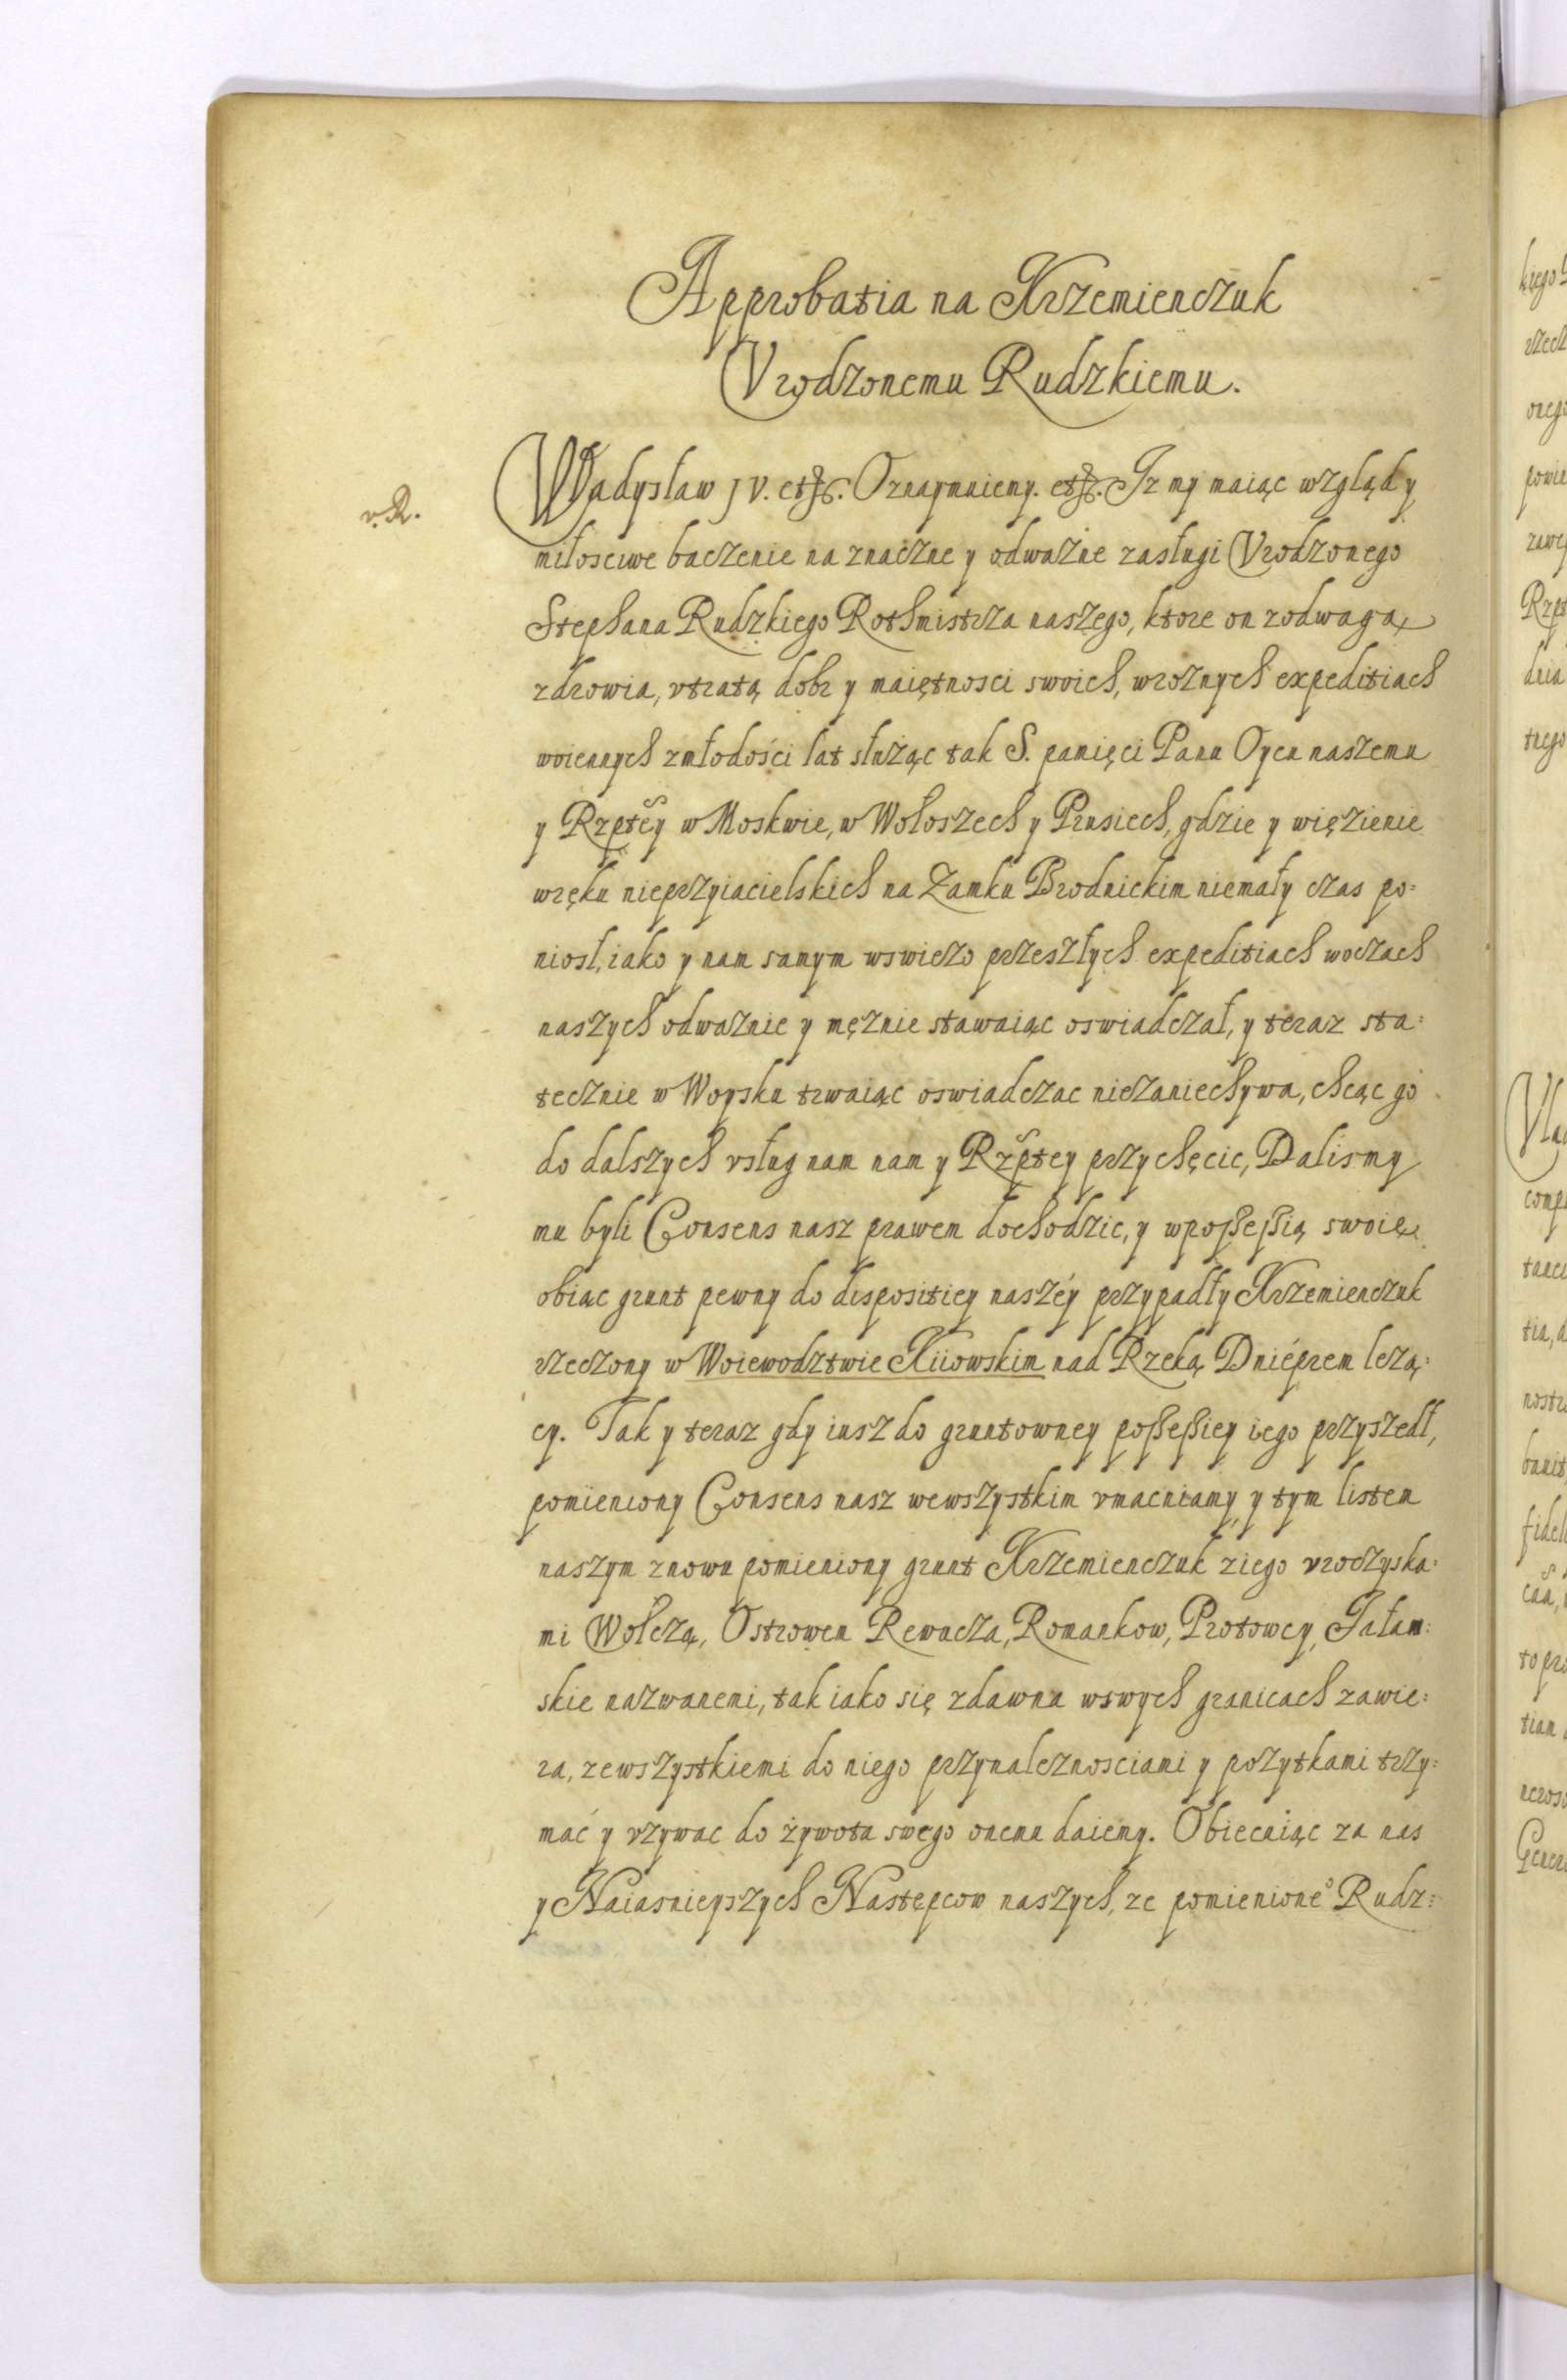 Approbatia na Krzemienczuk
Vrodzonemu Rudzkiemu.
v. R.
Władysław JV. etc. Oznaymuiemy. etc. Iz my maiąc wzgląd y
miłosciwe baczenie na znaczne y odważne zasługi Vrodzonego
Stephana Rudzkiego Rothmistrza naszego, ktore on zodwagą
zdrowia, vtratą dobr y maiętnosci swoich, wroznych expeditiach
woiennych zmłodości lat służąc tak S. pamięci Panu Oycu naszemu
y Rzptey w Moskwie, w Wołoszech y Prusiech, gdzie y więzienie
wręku nieprzyiacielskich na Zamku Brodnickim niemały czas po=
niosł, iako y nam samym wswiezo przeszłych expeditiach woczach
naszych odwaznie y męznie stawaiąc oswiadczał, y teraz sta=
tecznie w Woysku trwaiąc oswiadczac niezaniechywa, chcąc go
do dalszych vsług nam nam y Rzptey przychęcic, Dalismy
mu byli Consens nasz prawem dochodzic, y wpossessią swoię
obiąc grunt pewny do dispositiey naszéy przypadły Krzemienczuk
rzeczony w Woiewodztwie Kiiowskim nad Rzeką Dnieprem lezą=
cy. Tak y teraz gdy iusz do gruntowney possessiey iego przyszedł,
pomieniony Consens nasz wewszystkim vmacniamy, y tym listem
naszym znowu pomieniony grunt Krzemienczuk ziego vroczyska=
mi Wołczą, Ostrowem Rewucza, Romankow, Protowcy, Tałam=
skie nazwanemi, tak iako się zdawna wswych granicach zawie=
ra, zewszystkiemi do niego przynaleznosciami y pozytkami trzy=
mać y vzywac do żywota swego onemu daiemy. Obiecuiąc za nas
y Naiasnieyszych Następcow naszych, ze pomienione° Rudz=